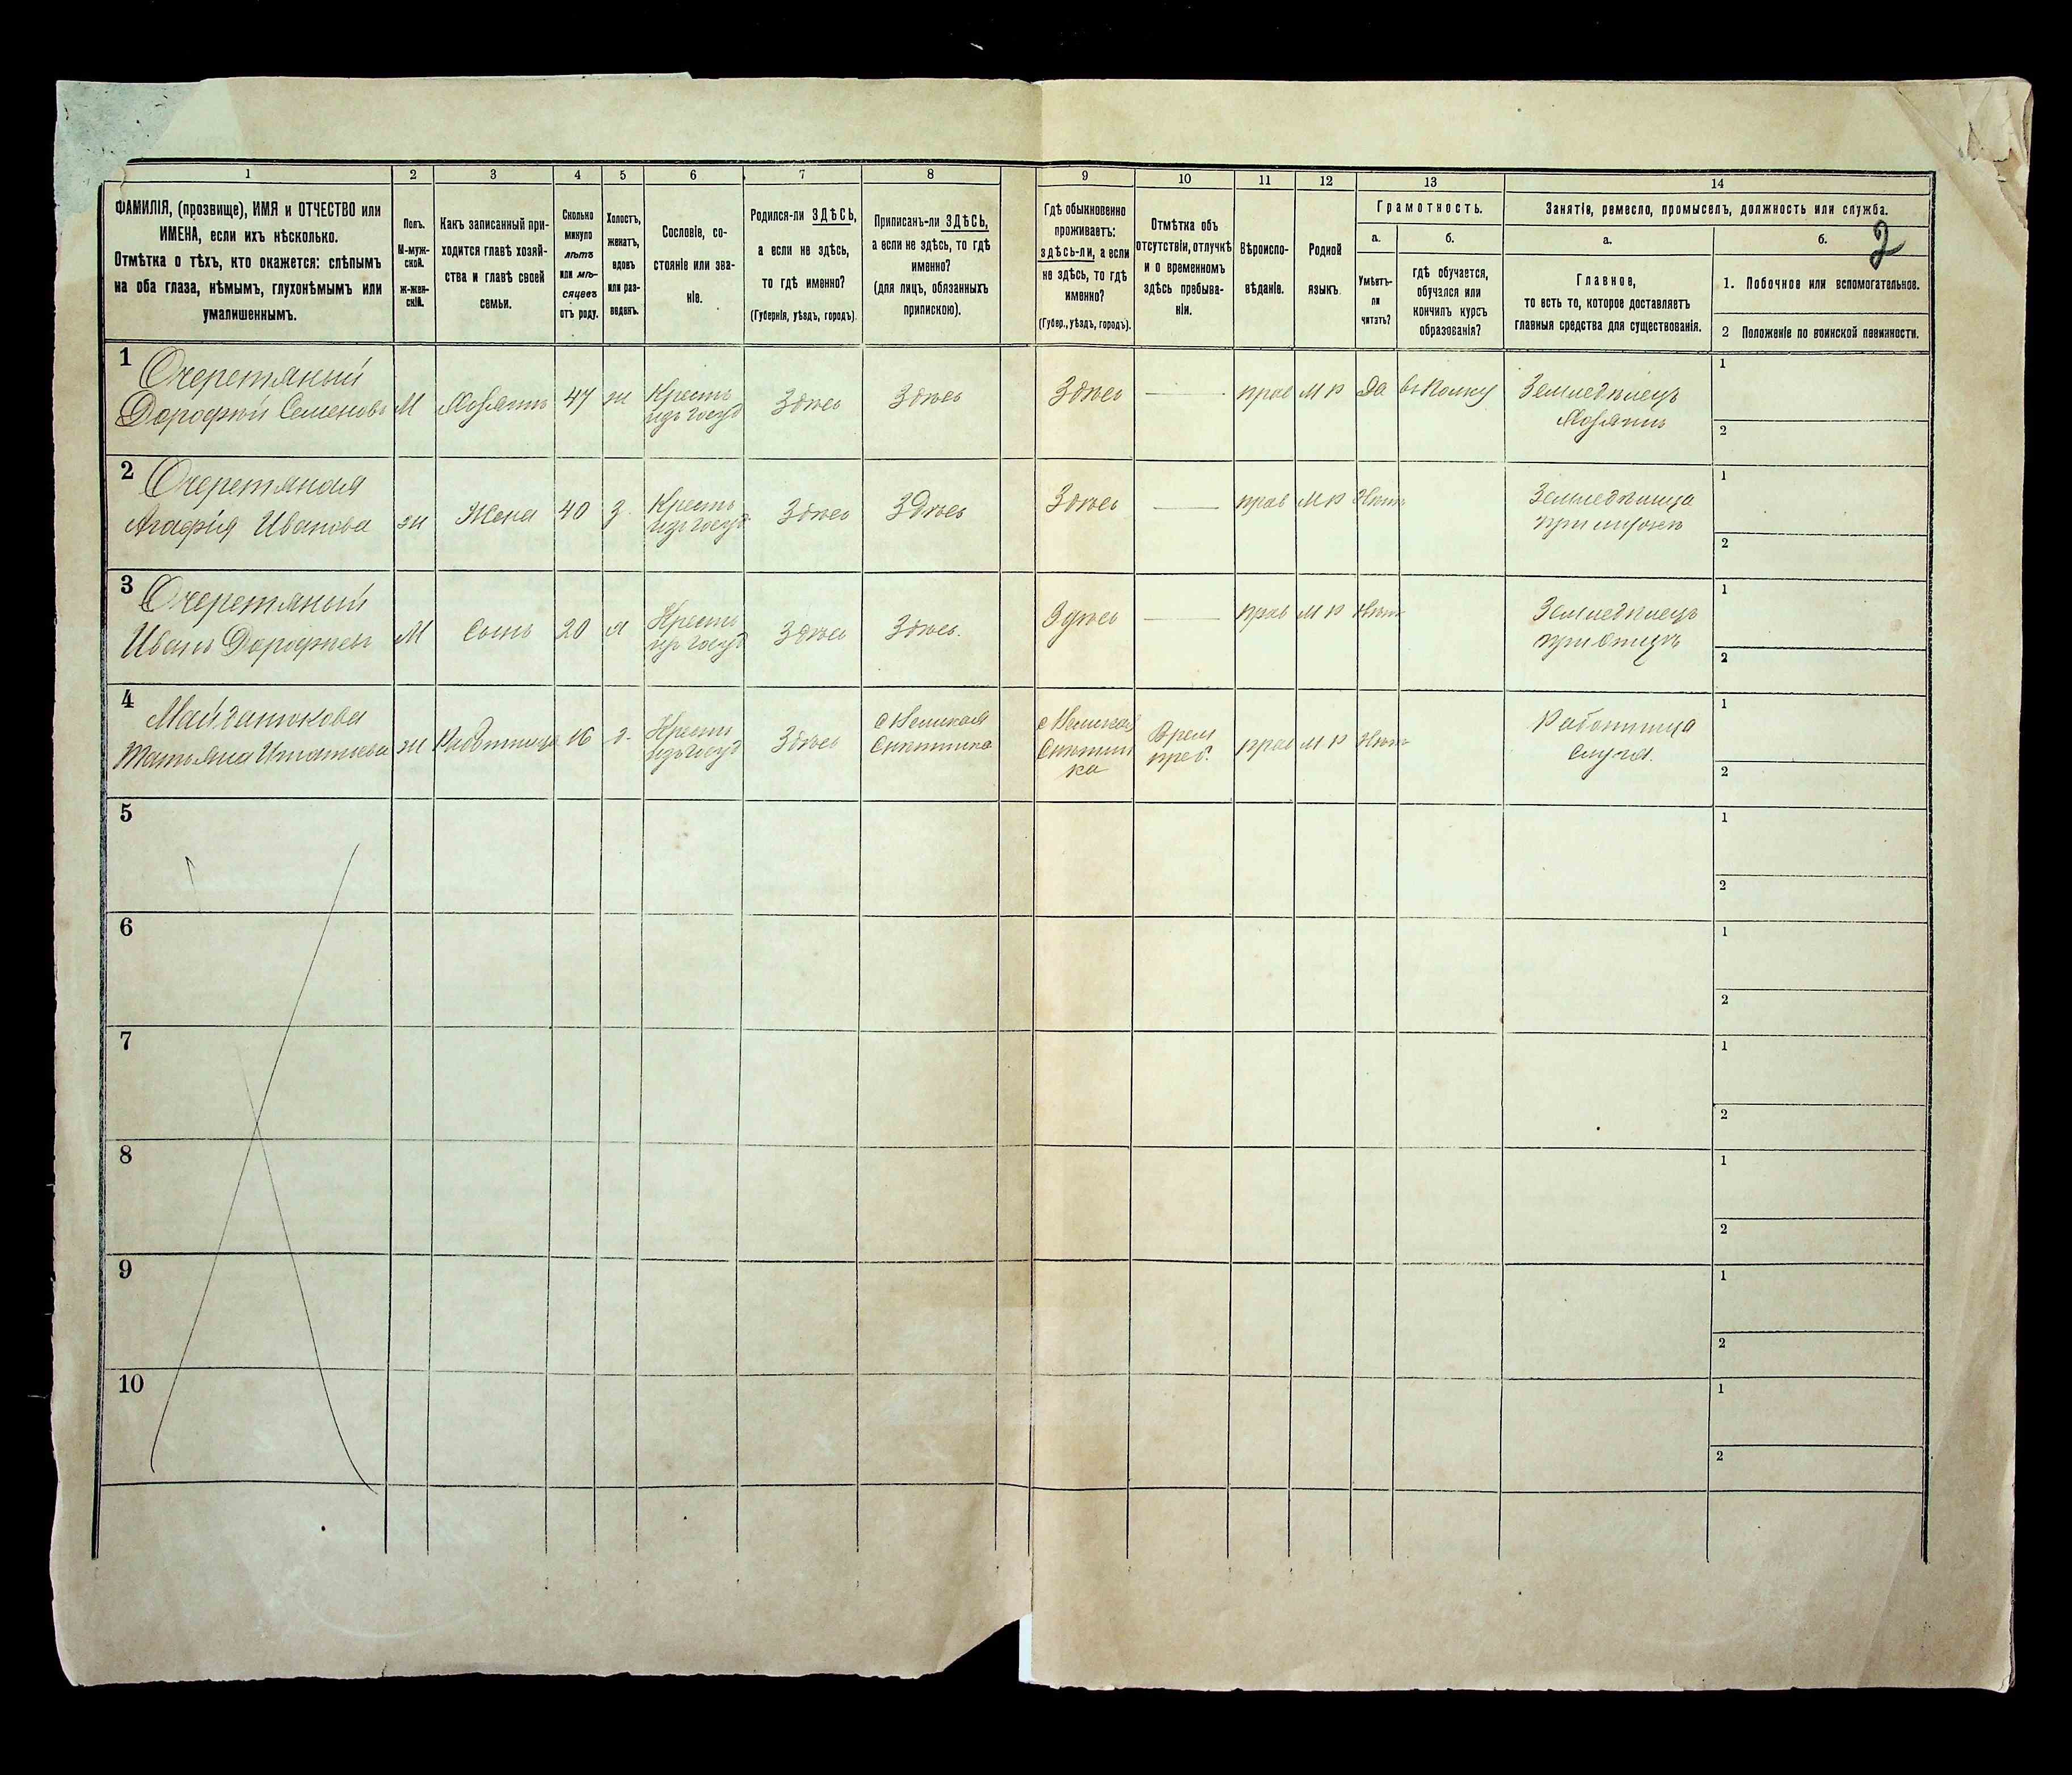 1 2 3 4 5 6 7 8 9 10 11 12 13 14
ФАМИЛІЯ, (прозвище), ИМЯ и ОТЧЕСТВО или
ИМЕНА, если ихъ нѣсколько.
Отмѣтка о тѣхъ, кто окажется: слѣпымъ
на оба глаза, нѣмымъ, глухонѣмымъ или
умалишеннымъ.
Полъ.
М-муж-
ской.
Ж-жен-
скій.
Какъ записанный при-
ходится главѣ хозяй-
ства и главѣ своей
семьи.
Сколько
минуло
лѣтъ
или мѣ-
сяцевъ
отъ роду.
Холостъ,
женатъ,
вдовъ
или раз-
веденъ.
Сословіе, со-
стояніе или зва-
ніе.
Родился-ли ЗДѢСЬ,
а если не здѣсь,
то гдѣ именно?
(Губернія, уѣздъ, городъ).
Приписанъ-ли ЗДѢСЬ,
а если не здѣсь, то гдѣ
именно?
(для лицъ, обязанныхъ
припискою).
Гдѣ обыкновенно
проживаетъ:
здѣсь-ли, а если
не здѣсь, то гдѣ
именно?
(Губер., уѣздъ, городъ).
Отмѣтка объ
отсутствіи, отлучкѣ
и о временномъ
здѣсь пребыва-
ніи.
Вѣроиспо-
вѣданіе.
Родной
языкъ.
Грамотность.
а.
Умѣетъ-
ли
читать?
б.
гдѣ обучается,
обучался или
кончилъ курсъ
образованія?
Занятіе, ремесло, промыселъ, должность или служба.
2
а.
Главное,
то есть то, которое доставляетъ
главныя средства для существованія.
б.
1. Побочное или вспомогательное.
2 Положеніе по воинской повинности.
1
Очеретяный
Дорофѣй Семеновъ
М
Хозяинъ
47
ж
Кресть
изъ госуд
Здѣсь
Здѣсь
Здѣсь
—
прав
М Р
Да
въ полку
Земледѣлецъ
Хозяинъ
1
2
2
Очеретяная
Агафія Иванова
ж
Жена
40
з
Кресть
изъ госуд
Здѣсь
Здѣсь
Здѣсь
—
прав
М Р
Нѣтъ
Земледѣлица
при мужѣ
1
2
3
Очеретяный
Иванъ Дорофѣевъ
М
Сынъ
20
х
Кресть
изъ госуд
Здѣсь
Здѣсь.
Здѣсь
—
прав
М Р
Нѣтъ
Земледѣлецъ
при отцѣ
1
2
4
Татьяна Игнатьева
ж
Работница
16
Кресть
изъ госуд
Здѣсь
с Великая
Снѣтинка
с Великая
Снѣтин
ка
Врем
преб.
прав
М Р
Нѣтъ
Работница
Слуга.
1
2
5
1
2
6
1
2
7
1
2
8
1
2
9
1
2
10
1
2